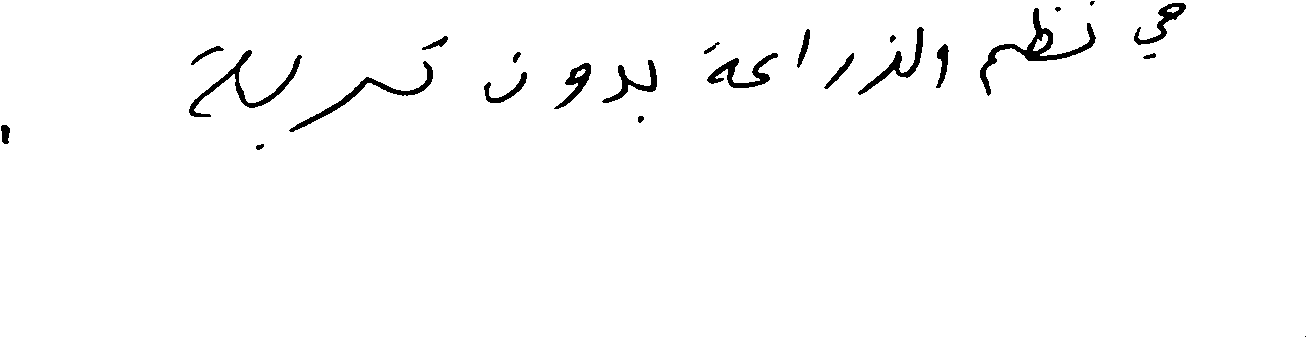 في نظم الزراعة بدون تربة